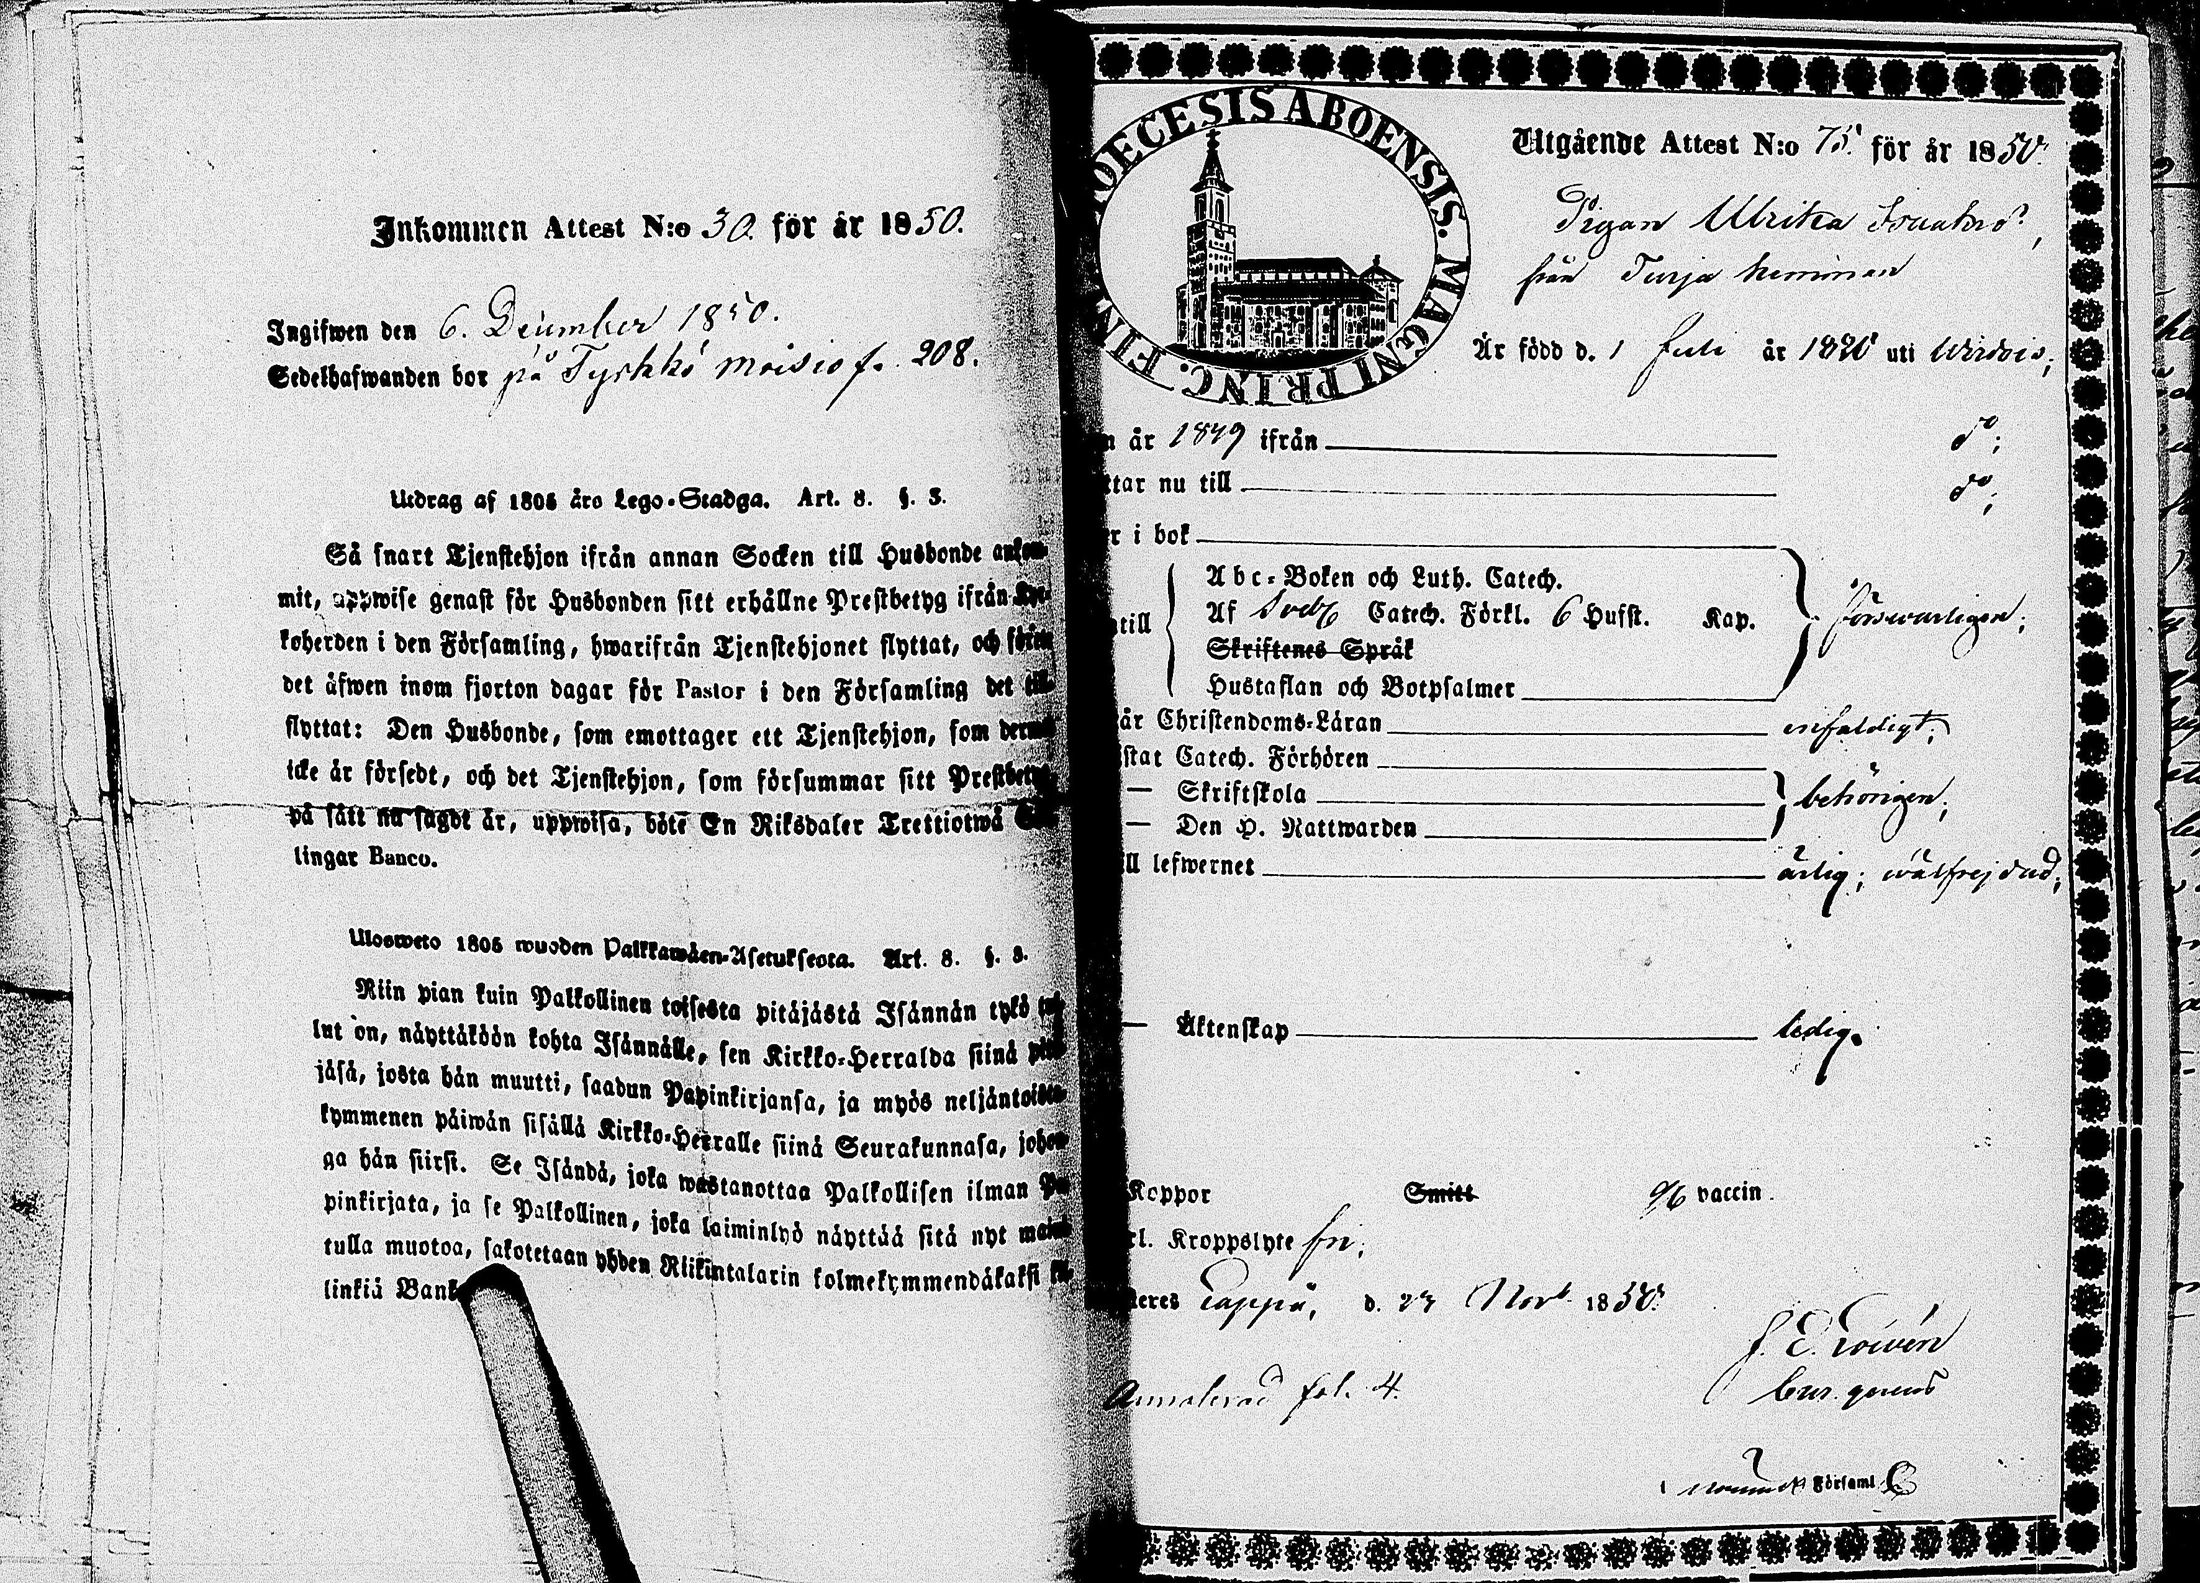 Inkommen Attest N:o 30. för år 1850.
Ingifwen den 6. December 1850.
Sedelhafwanden bor på Tyrkkö moisio f. 208.
Utdrag af 1805 års Lego-Stadga. Art. 8. §. 3.
Så snart Tjenstehjon ifrån annan Socken till Husbonde ankom-
mit, uppwise genast för Husbonden sitt erhållne Prestbetyg ifrån Kyr-
koherden i den Församling, hwarifrån Tjenstehjonet flyttat, och
det äfwen inom fjorton dagar för Pastor i den Församling det till-
flyttat: Den Husbonde, som emottager ett Tjenstehjon, som dermed
icke är försedt, och det Tjenstehjon, som försummar sitt Prestbetyg,
på sätt nu sagdt är, uppwisa, böte En Riksdaler Trettiotwå
lingar Banco.
Ulosweto 1805 wuoden Palkkawäen-Asetuksesta. Art. 8. §. 3.
Niin pian kuin Palkollinen toisesta pitäjästä Isännän tykö tul-
lut on, näyttäköön kohta Isännälle, sen Kirkko-Herralda siinä pitä-
jäsä, josta hän muutti, saadun Papinkirjansa, ja myös neljäntoista-
kymmenen päiwän sisällä Kirkko-Herralle siinä Seurakunnasa, johon-
ga hän siirsi. Se Isändä, joka wastanottaa Palkollisen ilman Pa-
pinkirjata, ja se Palkollinen, joka laiminlyö näyttää sitä nyt mainit-
tulla muotoa, sakotetaan yhden Rikintalarin kolmekymmendäkaksi kil-
linkiä Bank
DIOECESIS ABOENSIS. MAGNI PRINC. FIN
Utgående Attest N:o 75. för år 1850.
Pigan Ulrika Isaaksd:r,
från Turja hemman
Är född d. 1 Juli år 1826 uti Wirdois;
n år 1849 ifrån d:o;
ttar nu till d:o;
er i bok
Abc-Boken och Luth. Catech.
till Af Sveb. Catech. Förkl. 6 Husst. Kap. försvarligen;
Skriftenes Språk
Hustaflan och Botpsalmer
år Christendoms-Läran enfaldigt;
istat Catech. Förhören
— Skriftskola behörigen;
— Den H. Nattwarden
ll lefwernet ärlig; wälfrejdad;
— Äktenskap ledig.
Koppor Smitt g/b vaccin.
rl. Kroppslyte fri;
teres Cappä, d. 23 Novb. 1850.
cur. gerens
fol. 4.
Församl.